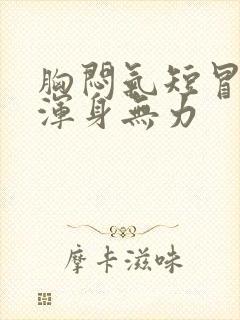 胸悶氣短冒
渾身無力
摩卡滋味